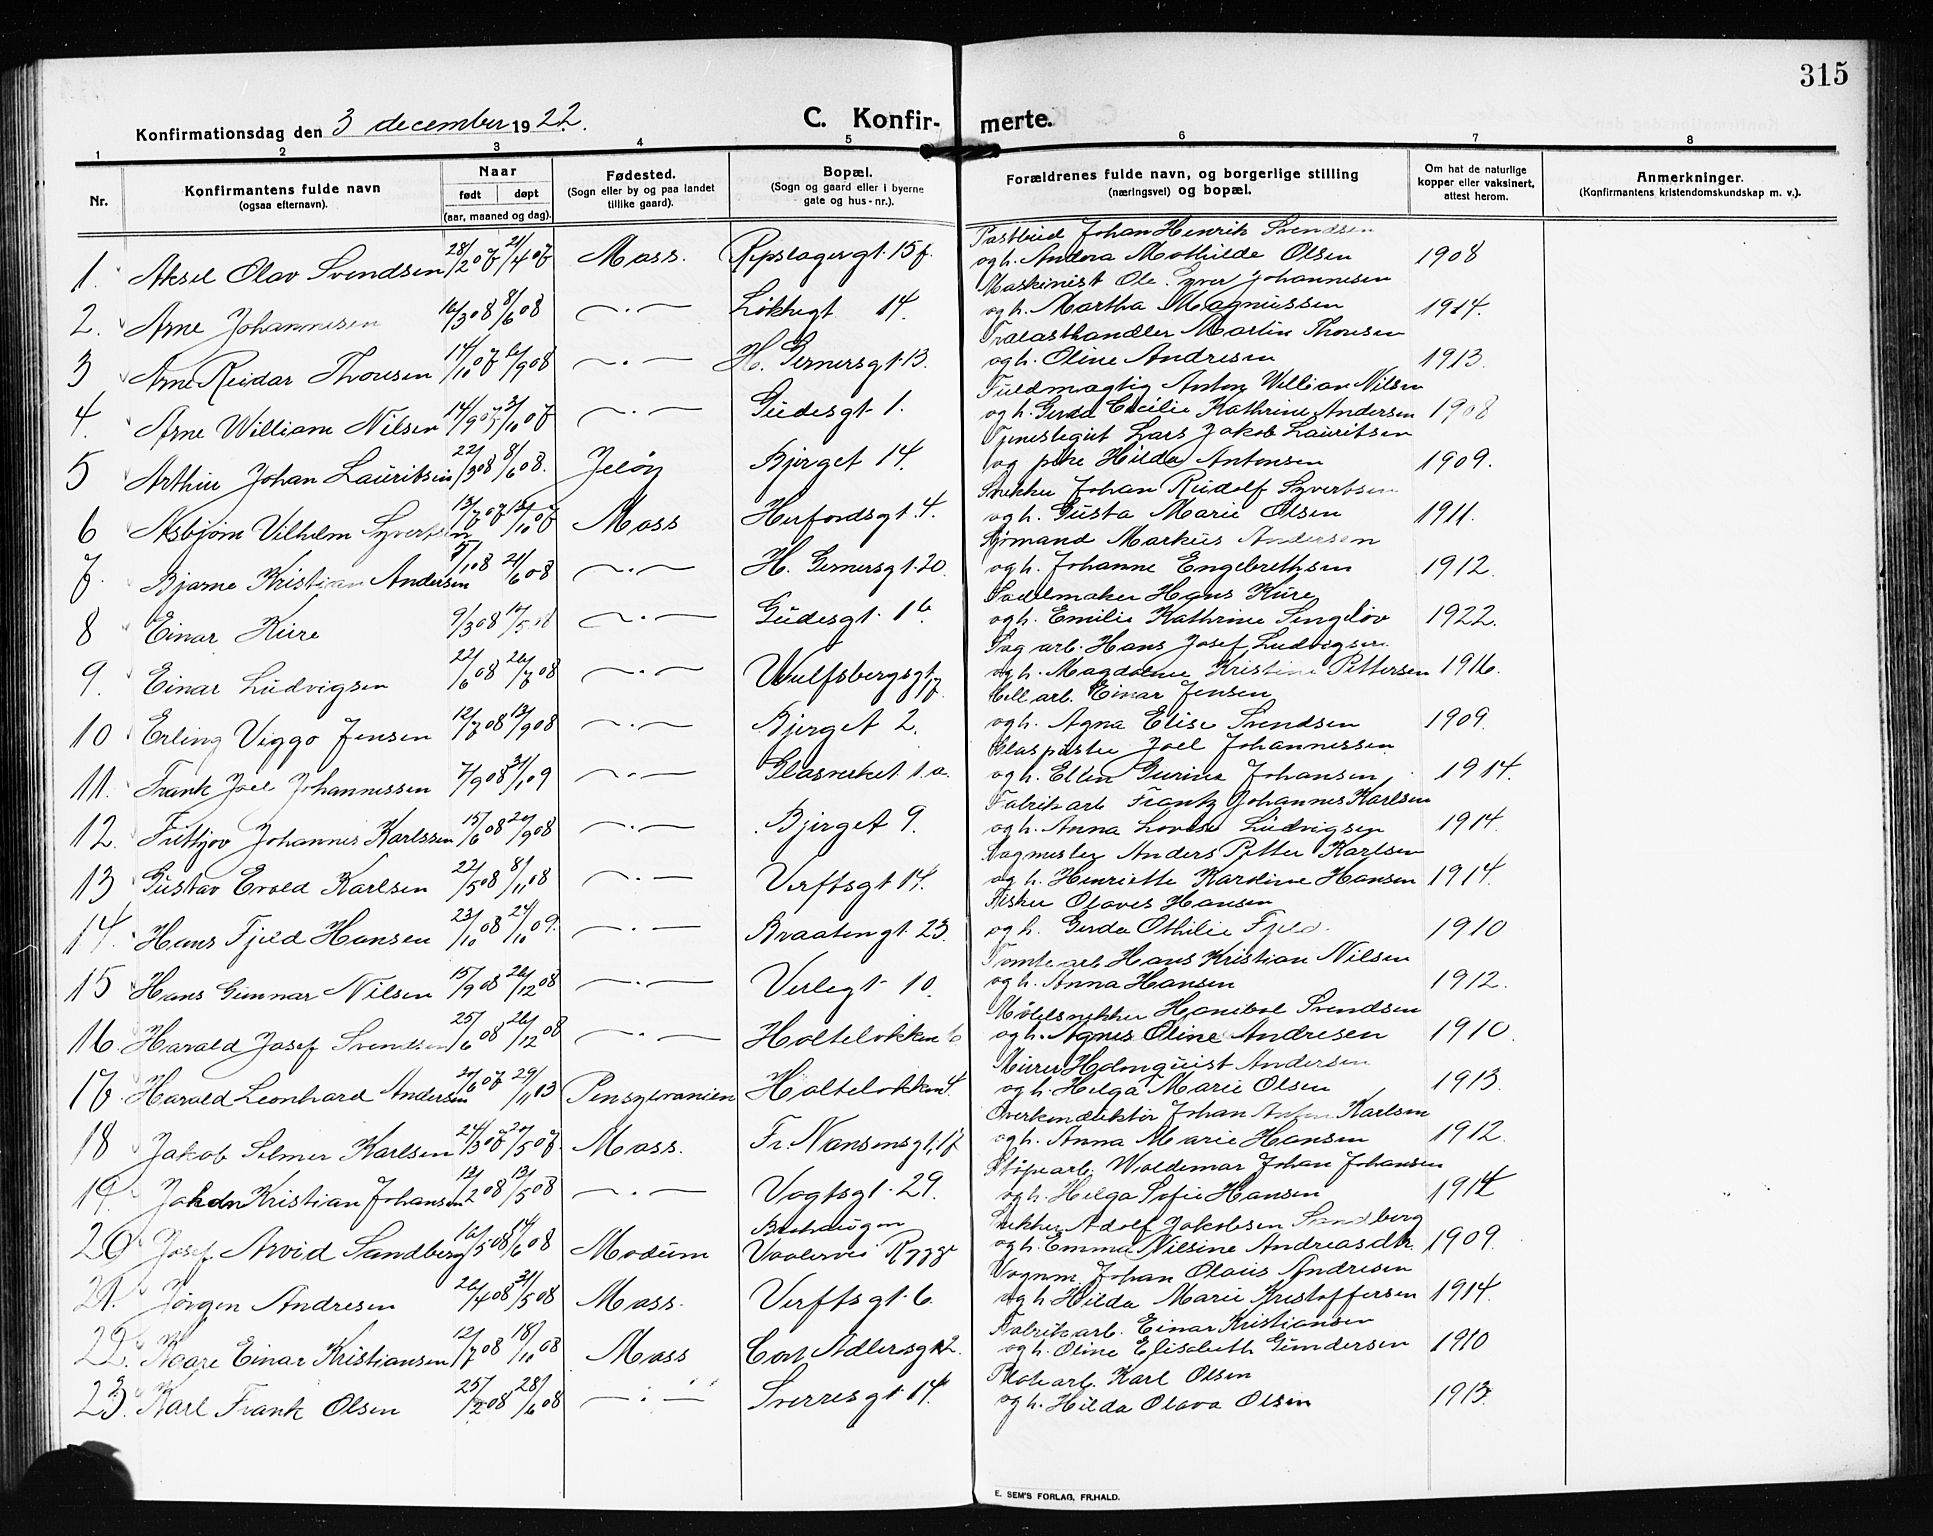 315
Konfirmationsdag den 3 december 1922.
C. Konfir- merte.
1 2 3 4 5 6 7 8
Nr.
Konfirmantens fulde navn
(ogsaa efternavn).
Naar
født døpt
(aar, maaned og dag).
Fødested.
(Sogn eller by og paa landet
tillike gaard).
Bopæl.
(Sogn og gaard eller i byerne
gate og hus-nr.).
Forældrenes fulde navn, og borgerlige stilling
(næringsvei) og bopæl.
Om hat de naturlige
kopper eller vaksinert,
attest herom.
Anmerkninger.
(Konfirmantens kristendomskundskap m. v.).
Postbud Johan Henrik Svendsen
1. Aksel Olav Svendsen 28/2 07 21/4 07 Moss. Repslagergt. 15 f. og h. Andora Mathilde Olsen 1908
Maskinist Ole Syver Johannesen
2. Arne Johannesen 16/3 08 8/6 08 —·— Løkkegt 14. og h. Martha Magnussen 1914.
Trælasthandler Martin Thoresen
3 Arne Reidar Thoresen 14/10 07 6/9 08 —·— H. Gernersgt. 13. og h. Oline Andresen 1913.
Fuldmægtig Anton William Nilsen
4. Arne William Nilsen 14/9 07 3/10 07 —·— Gudesgt 1. og h. Gerda Cecilie Kathrine Andersen 1908
Tjenestegut Lars Jakob Lauritsen
5 Arthur Johan Lauritsen 22/3 08 8/6 08. Jeløy Bjerget 14. og pike Hilda Antonsen 1909.
Snekker Johan Rudolf Syvertsen
6 Asbjørn Vilhelm Syvertsen 13/7 07 13/10 07 Moss Herfordsgt. 4. og h. Gusta Marie Olsen 1911.
Sjømand Markus Andersen
7. Bjarne Kristian Andersen 5/1 08 21/6 08 —·— H. Gernersgt. 20. og h. Johanne Engebrethsen 1912.
Sadelmaker Hans Kure
8 Einar Kure 9/3 08 17/5 08 —·— Gudesgt. 1 b. og h. Emilie Kathrine Sengeløv 1922.
Sagarb. Hans Josef Ludvigsen
9. Einar Ludvigsen 22/6 08 26/7 08 —·— Wulfsbergsgt. 17. og h. Magdalene Kristine Pettersen 1916.
Cell arb. Einar Jensen
10 Erling Viggo Jensen 12/7 08 13/9 08 —·— Bjerget 2. og h. Agna Elise Svendsen 1909.
Glaspuster Joel Johannessen
11. Frank Joel Johannessen 7/9 08 31/1 09 —·— Glasverket 1 a. og h. Ellen Gurine Johansen 1914.
Fabrikarb Frantz Johannes Karlsen
12. Fritjov Johannes Karlssen 15/6 08 20/9 08 —·— Bjerget 9. og h. Anna Lovise Ludvigsen 1914.
Sagmester Anders Petter Karlsen
13 Gustav Evald Karlsen 22/5 08 8/11 08 —·— Verftsgt 14. og h. Henriette Karoline Hansen 1914.
Fisker Olaves Hansen
14. Hans Fjeld Hansen 23/10 08 24/10 09. —·— Braatengt. 23. og h. Gerda Othilie Fjeld. 1910
Tomtearb Hans Kristian Nilsen
15 Hans Gunnar Nilsen 15/9 08 26/12 08 —·— Verlegt 10. og h. Anna Hansen 1912.
Møbelsnekker Hanibal Svendsen
16. Harald Josef Svendsen 25/6 08 26/12 08 —·— Holteløkken 6 og h. Agnes Oline Andresen 1910.
Murer Holmquist Andersen
17. Harald Leonhard Andersen 2/6 07 29/11 13 Pensylvanien Holteløkken 4. og h. Helga Marie Olsen 1913.
Overkonduktør Johan Anton Karlsen
18 Jakob Selmer Karlsen 24/3 07 20/5 07. Moss. Fr. Nansensgt. 17 og h. Anna Marie Hansen 1912.
Støpearb. Waldemar Johan Johansen
19. Johan Kristian Johansen 12/2 08 13/5 08 —·— Vogtsgt. 29. og h. Helga Sofie Hansen 1914
Snekker Adolf Jakobsen Sandberg
20 Josef Arvid Sandberg 16/5 08 14/6 08 Modum Vaalervei Rygge og h. Emma Nilsine Andreasdtr. 1909.
Vognm. Johan Olaus Andresen
21. Jørgen Andresen 26/4 08 31/5 08 Moss. Verftsgt. 6. og h. Hilda Marie Kristoffersen 1914.
Fabrikarb. Einar Kristiansen
22. Kaare Einar Kristiansen 12/7 08 18/10 08 Moss Cort Adlersg 12. og h. Oline Elisabeth Gundersen 1910
arb. Karl Olsen
23. Karl Frank Olsen 25/2 08 28/6 08 —·— Sverresgt. 14. og h. Hilda Olava Olsen 1913.
E. SEM'S FORLAG, FR.HALD.